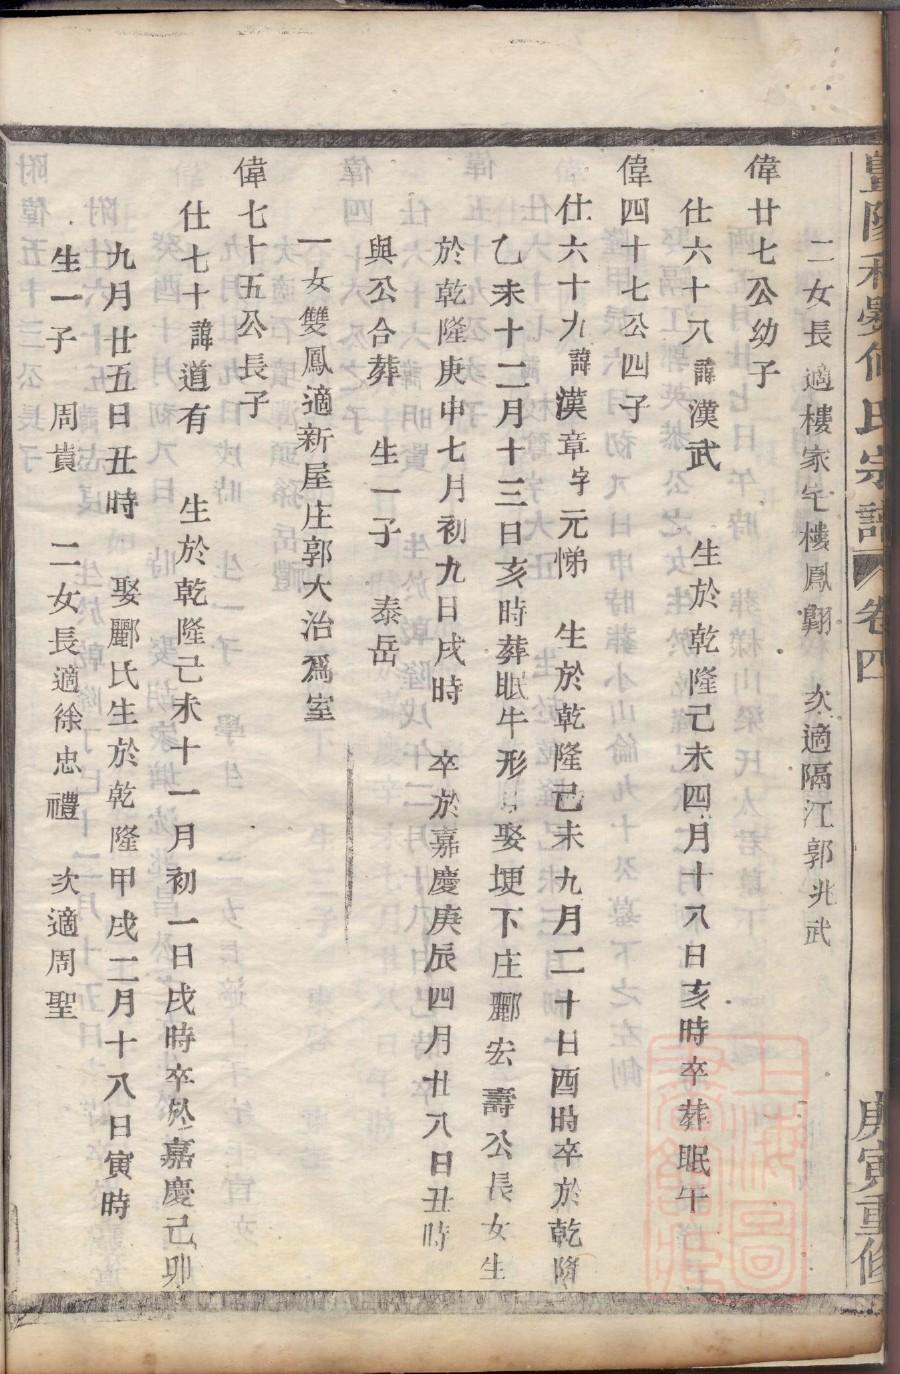 何氏宗譜 卷四 庚寅重修
二女長適樓家宅樓鳳翺 次適隔江郭兆武
偉廿七公幼子
仕六十八諱漢武 生於乾隆己未四月十八日亥時卒葬眠午
偉四十七公四子
仕六十九諱漢章字元悌 生於乾隆己未九月二十日酉時卒於乾隆
乙未十二月十三日亥時葬眠牛形 娶埂下庄酈宏壽公長女生
於乾隆庚申七月初九日戌時 卒於嘉慶庚辰四月廿八日丑時
與公合葬 生一子 泰岳
一女雙鳳適新屋庄郭大治爲室
偉七十五公長子
仕七十諱道有 生於乾隆己未十一月初一日戌時卒於嘉慶己卯
九月廿五日丑時 娶酈氏生於乾隆甲戌二月十八日寅時
生一子 周蕡 二女長適徐忠禮 次適周聖